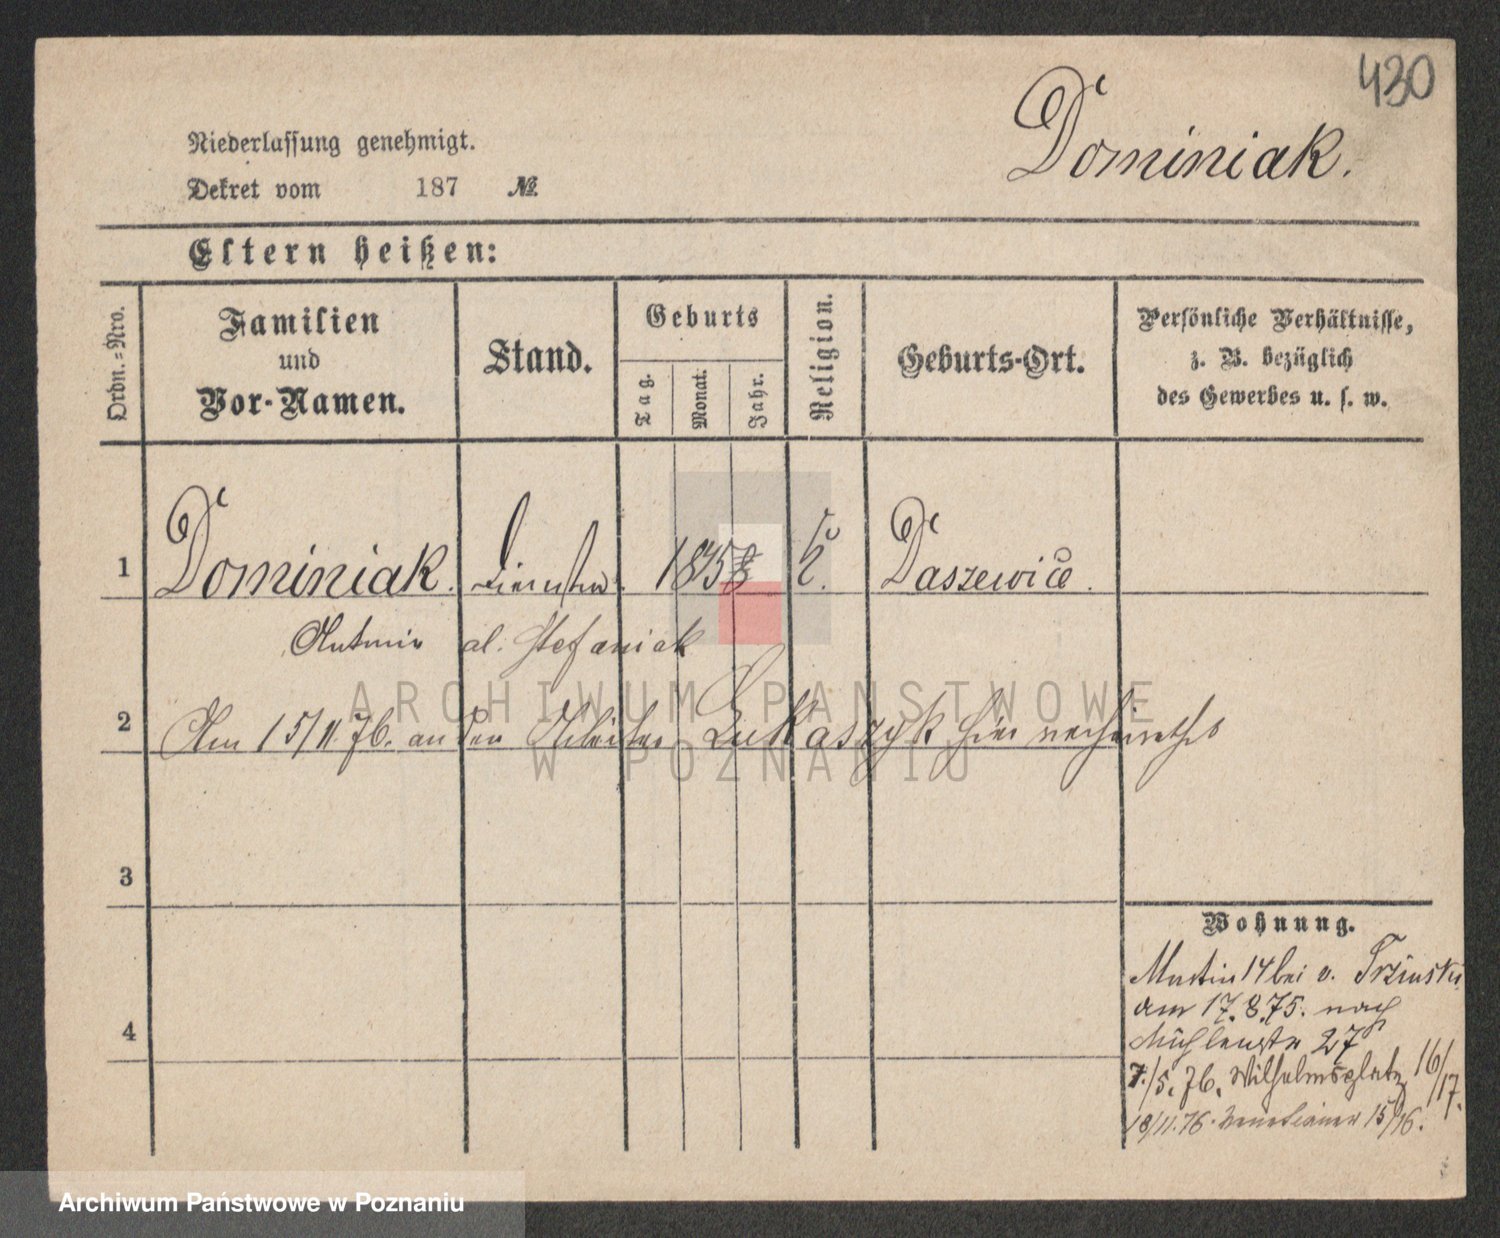 430
Dominiak.
Niederlassung genehmigt.
Dekret vom 187 №
Eltern heißen:
Ordn.-Nro.
Familien
und
Vor-Namen.
Stand.
Geburts
Tag.
Monat.
Jahr.
Religion.
Geburts-Ort.
Persönliche Verhältnisse,
z. B. bezüglich
des Gewerbes u. s. w.
1 Dominiak. Daszewice.
al. Stefaniak
2 Am 15/11 76. an den Arbeiter Lukaszyk hier verheirathet
3
Wohnung.
Martin 14 bei v.
am 17.8.75. nach
Mühlenstr 27
4
7./5. 76. Wilhelmsplatz 16/17.
18/11. 76. 15/16.
ARCHIWUM PAŃSTWOWE
W POZNANIU
Archiwum Państwowe w Poznaniu